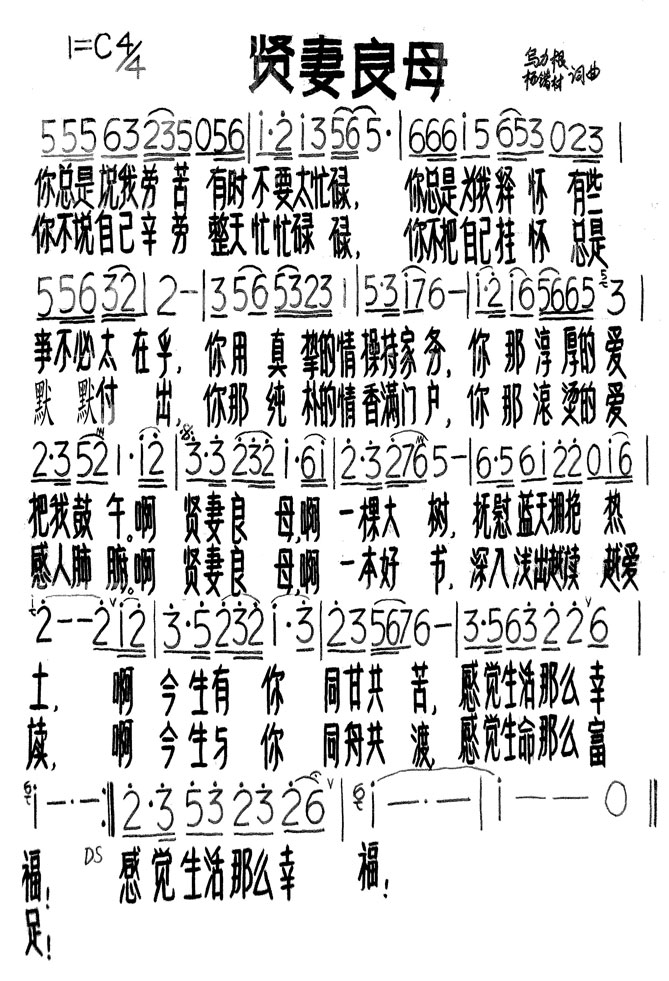 1=C 4/4
贤妻良母
乌力根
杨锴村 词曲
5 5 5 6 3 2 3 5 0 5 6 | i · 2 i 3 5 6 5 · | 6 6 6 i 5 6 5 3 0 2 3 |
你总是说我劳苦 有时不要太忙碌, 你总是为我释怀 有些
你不说自己辛劳 整天忙忙碌碌, 你不把自己挂怀 总是
5 5 6 3 2 | 2 — | 3 5 6 5 3 2 3 1 | 5 · 3 i 7 6 — | i · 2 i 6 5 6 6 5 3 |
事不必太在乎, 你用真挚的情操持家务, 你那淳厚的爱
默默付出, 你那纯朴的情香满门户, 你那滚烫的爱
2 · 3 5 2 1 · i 2 | 3 · 3 2 3 2 i · 6 i | 2 · 3 2 7 6 5 — | 6 · 5 6 i 2 2 0 i 6 |
把我鼓午。啊 贤妻良母,啊 一棵大树, 抚慰蓝天拥抱热
感人肺腑。啊 贤妻良母,啊 一本好书, 深入浅出越读越爱
2 — — 2 i 2 | 3 · 5 2 3 2 i · 3 | 2 3 5 6 7 6 — | 3 · 5 6 3 2 2 6 |
土, 啊 今生有你 同甘共苦, 感觉生活那么幸
读, 啊 今生与你 同舟共渡, 感觉生命那么富
i — · — · :‖ 2 · 3 5 3 2 3 2 6 | i — · — · | i — — 0 ‖
福! DS 感觉生活那么幸 福!
足!